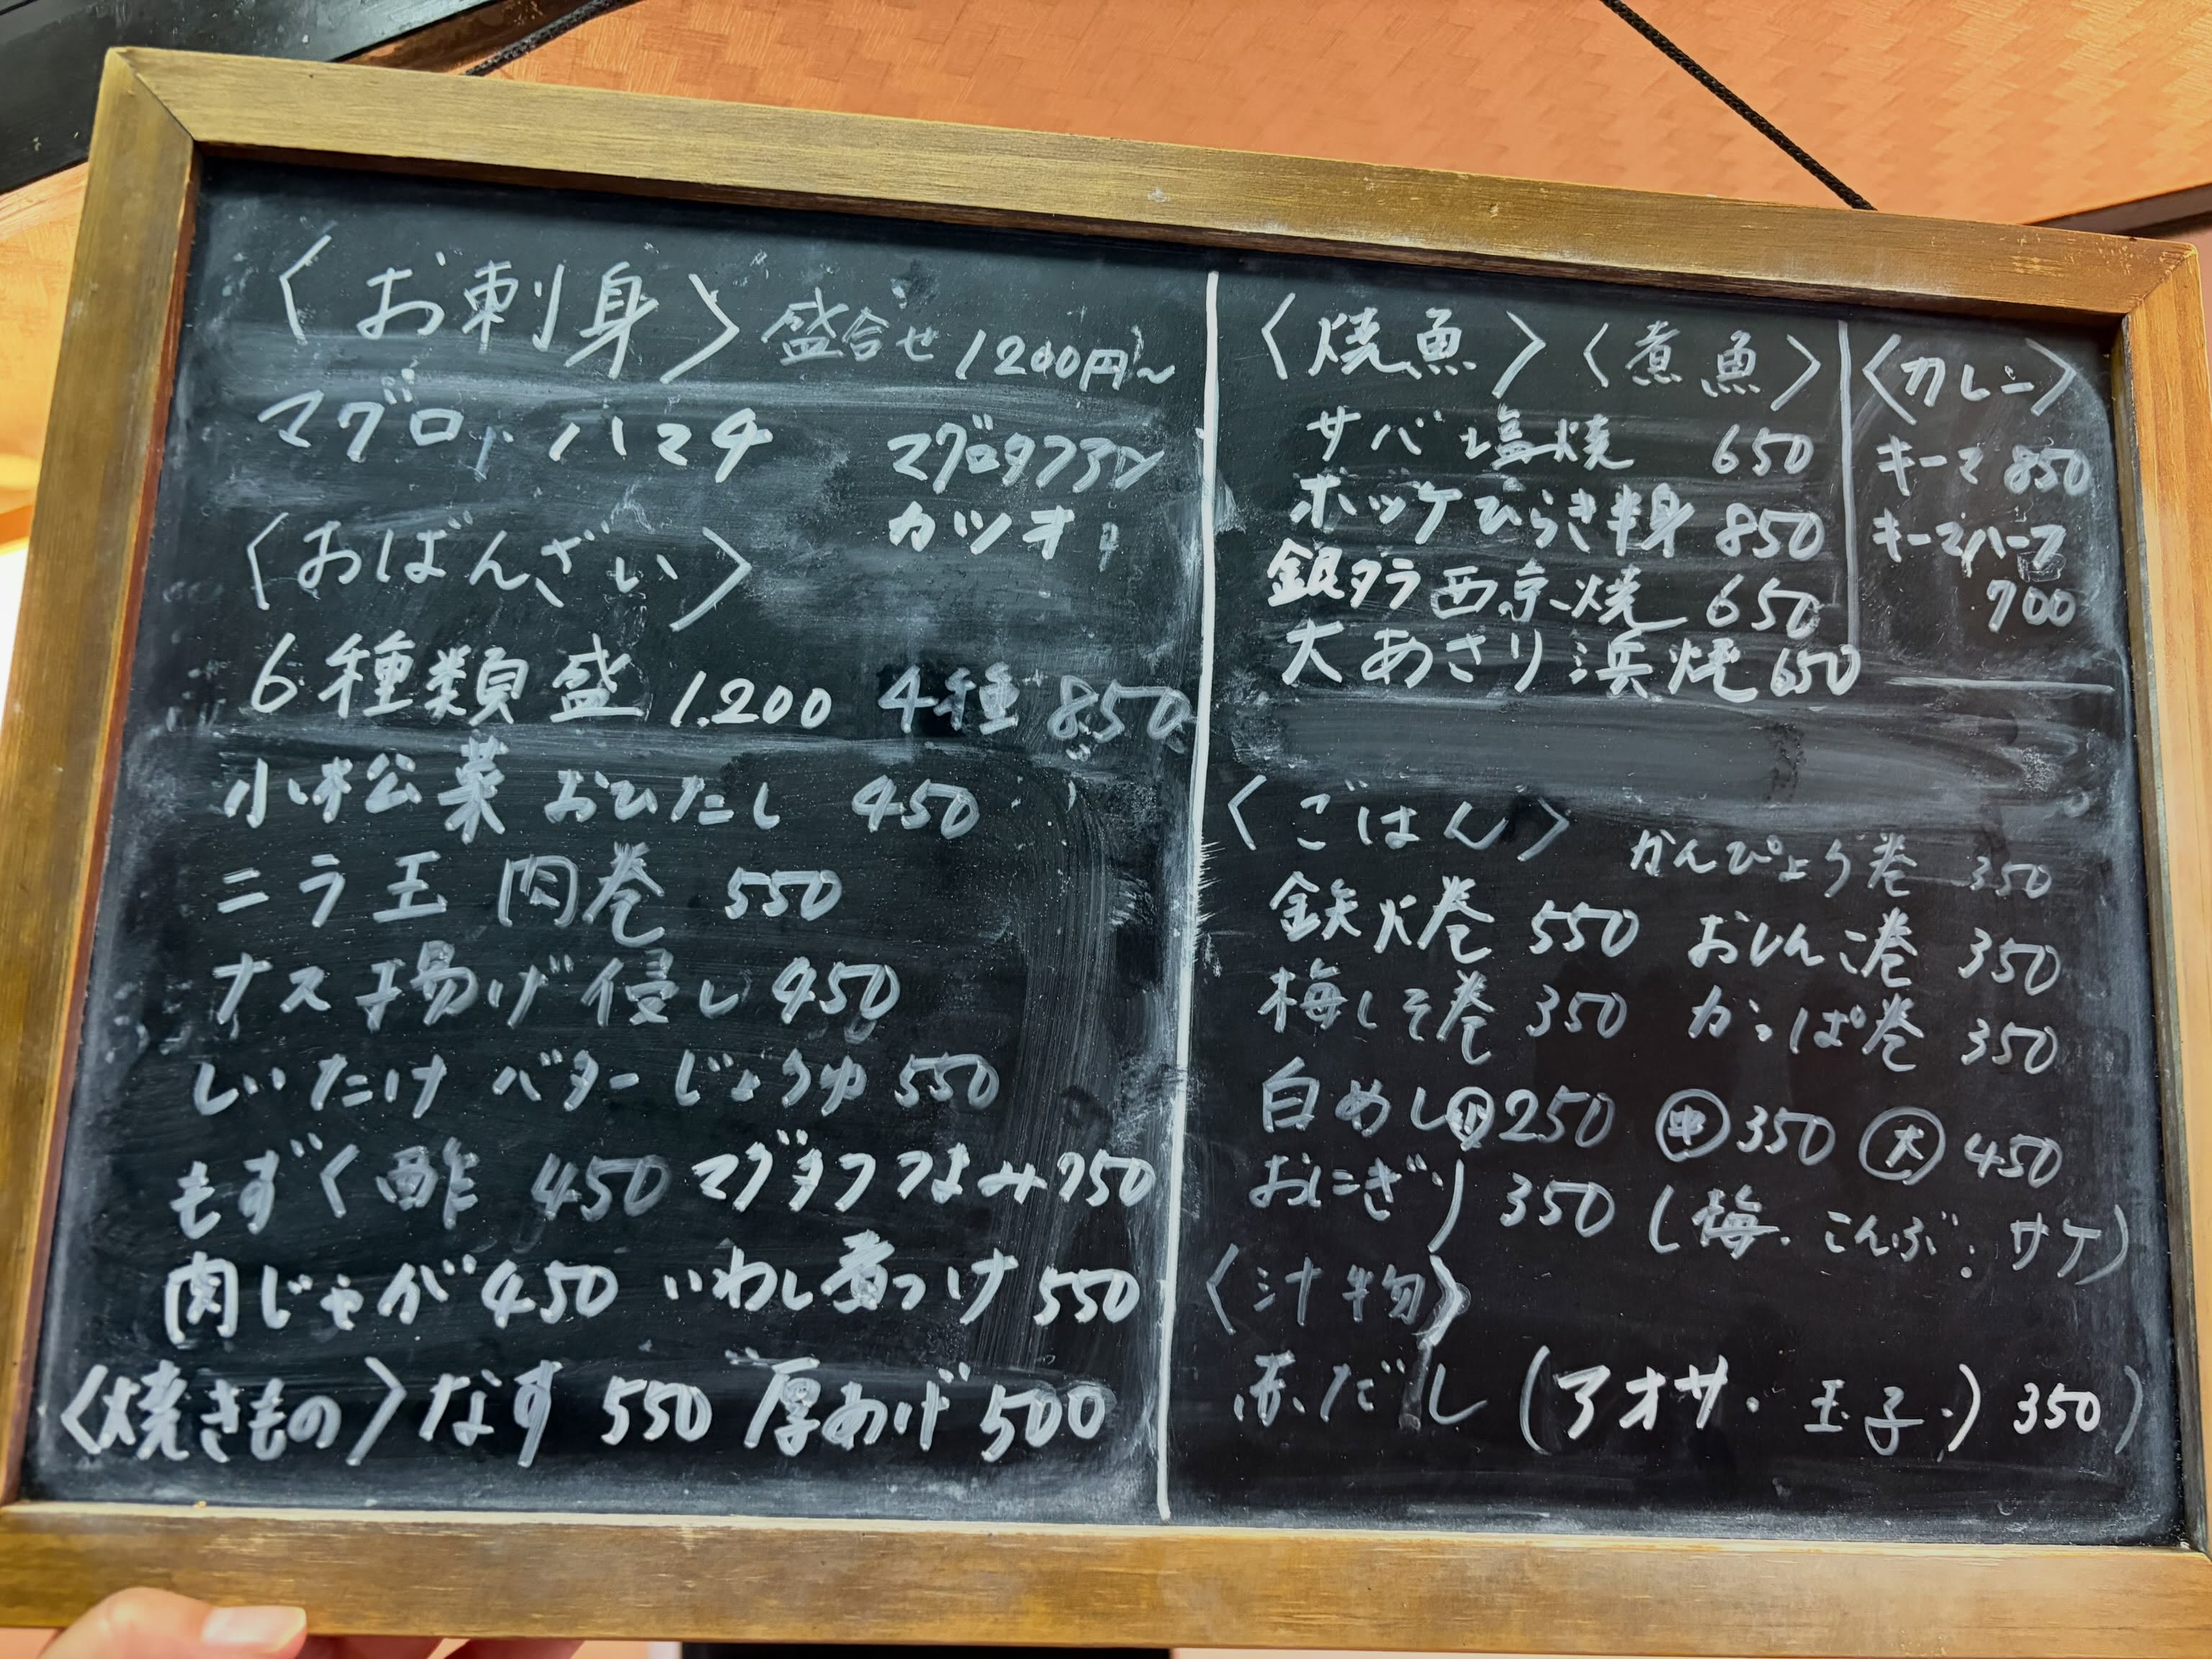 〈お刺身〉盛合せ 1200円〜
マグロ, ハマチ マグロタタミ
カツオ
〈おばんざい〉
6種類盛 1.200 4種 850
小松菜 おひたし 450
ニラ玉 肉巻 550
ナス揚げ侵し 450
しいたけ バターじょうゆ 550
もずく酢 450 マグタフつまみ 750
肉じゃが 450 いわし煮つけ 550
〈焼きもの〉なす 550 厚あげ 500
〈焼魚〉〈煮魚〉
サバ塩焼 650
ホッケひらき半身 850
銀タラ西京焼 650
大あさり浜焼 650
〈カレー〉
キーマ 850
キーマハーフ
700
〈ごはん〉 かんぴょう巻 350
鉄火巻 550 おしんこ巻 350
梅しそ巻 350 かっぱ巻 350
白めし㊥小 250 ㊥ 350 大 450
おにぎり 350 (梅・こんぶ・サケ)
〈汁物〉
赤だし (アオサ・玉子・) 350)